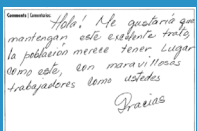 Comments | Comentarios:
Hola! Me gustaría que
mantengan este excelente trato,
la población merece tener lugar
como este, con maravillosos
trabajadores como ustedes
Gracias